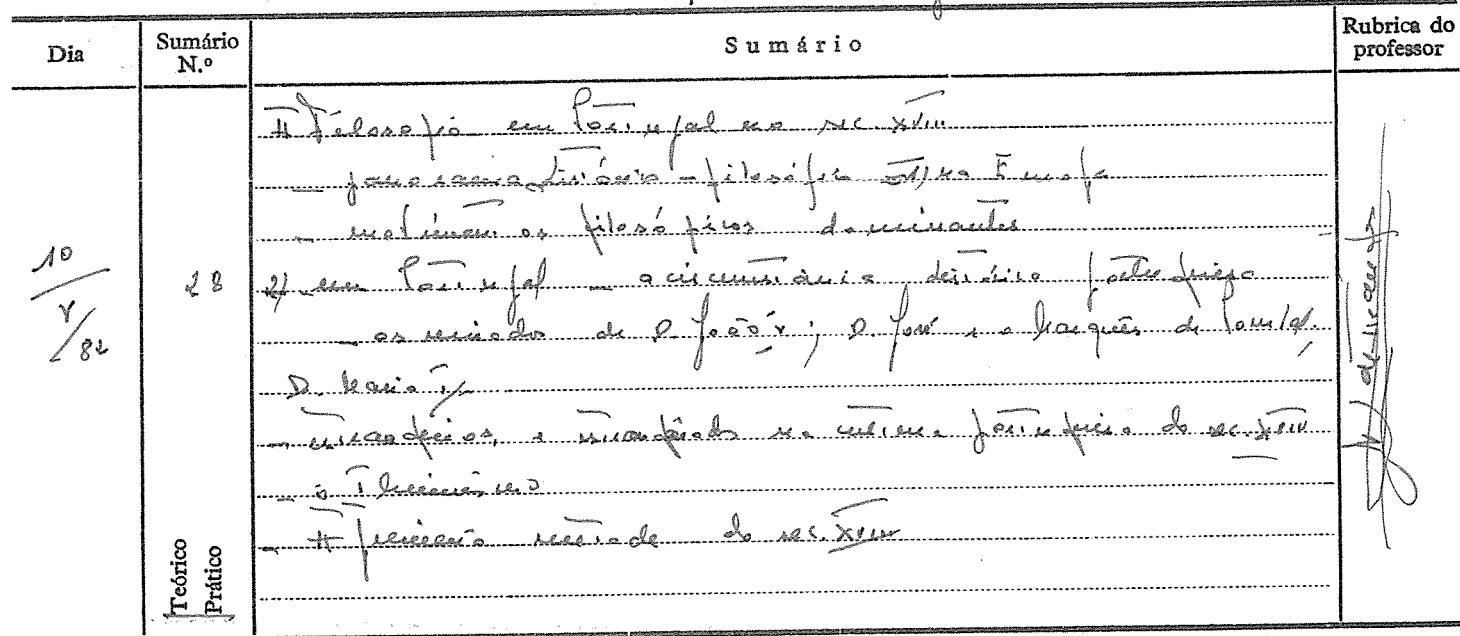 Dia
Sumário N.º
Sumário
Rubrica do professor
10/V/82
28
A Filosofia em Portugal no séc. XVIII
_ panorama histórico-filosófico 1) na Europa
_ filosóficos dominantes
2) em Portugal _ a circunstância histórica portuguesa
_ os reinados de D. João V; D. José e o Marquês de Pombal.
D. Maria I
_ estrangeiros e estrangeirados na cultura portuguesa do séc. XVIII
_ o Iluminismo
_ A primeira metade do séc. XVIII
Teórico
Prático